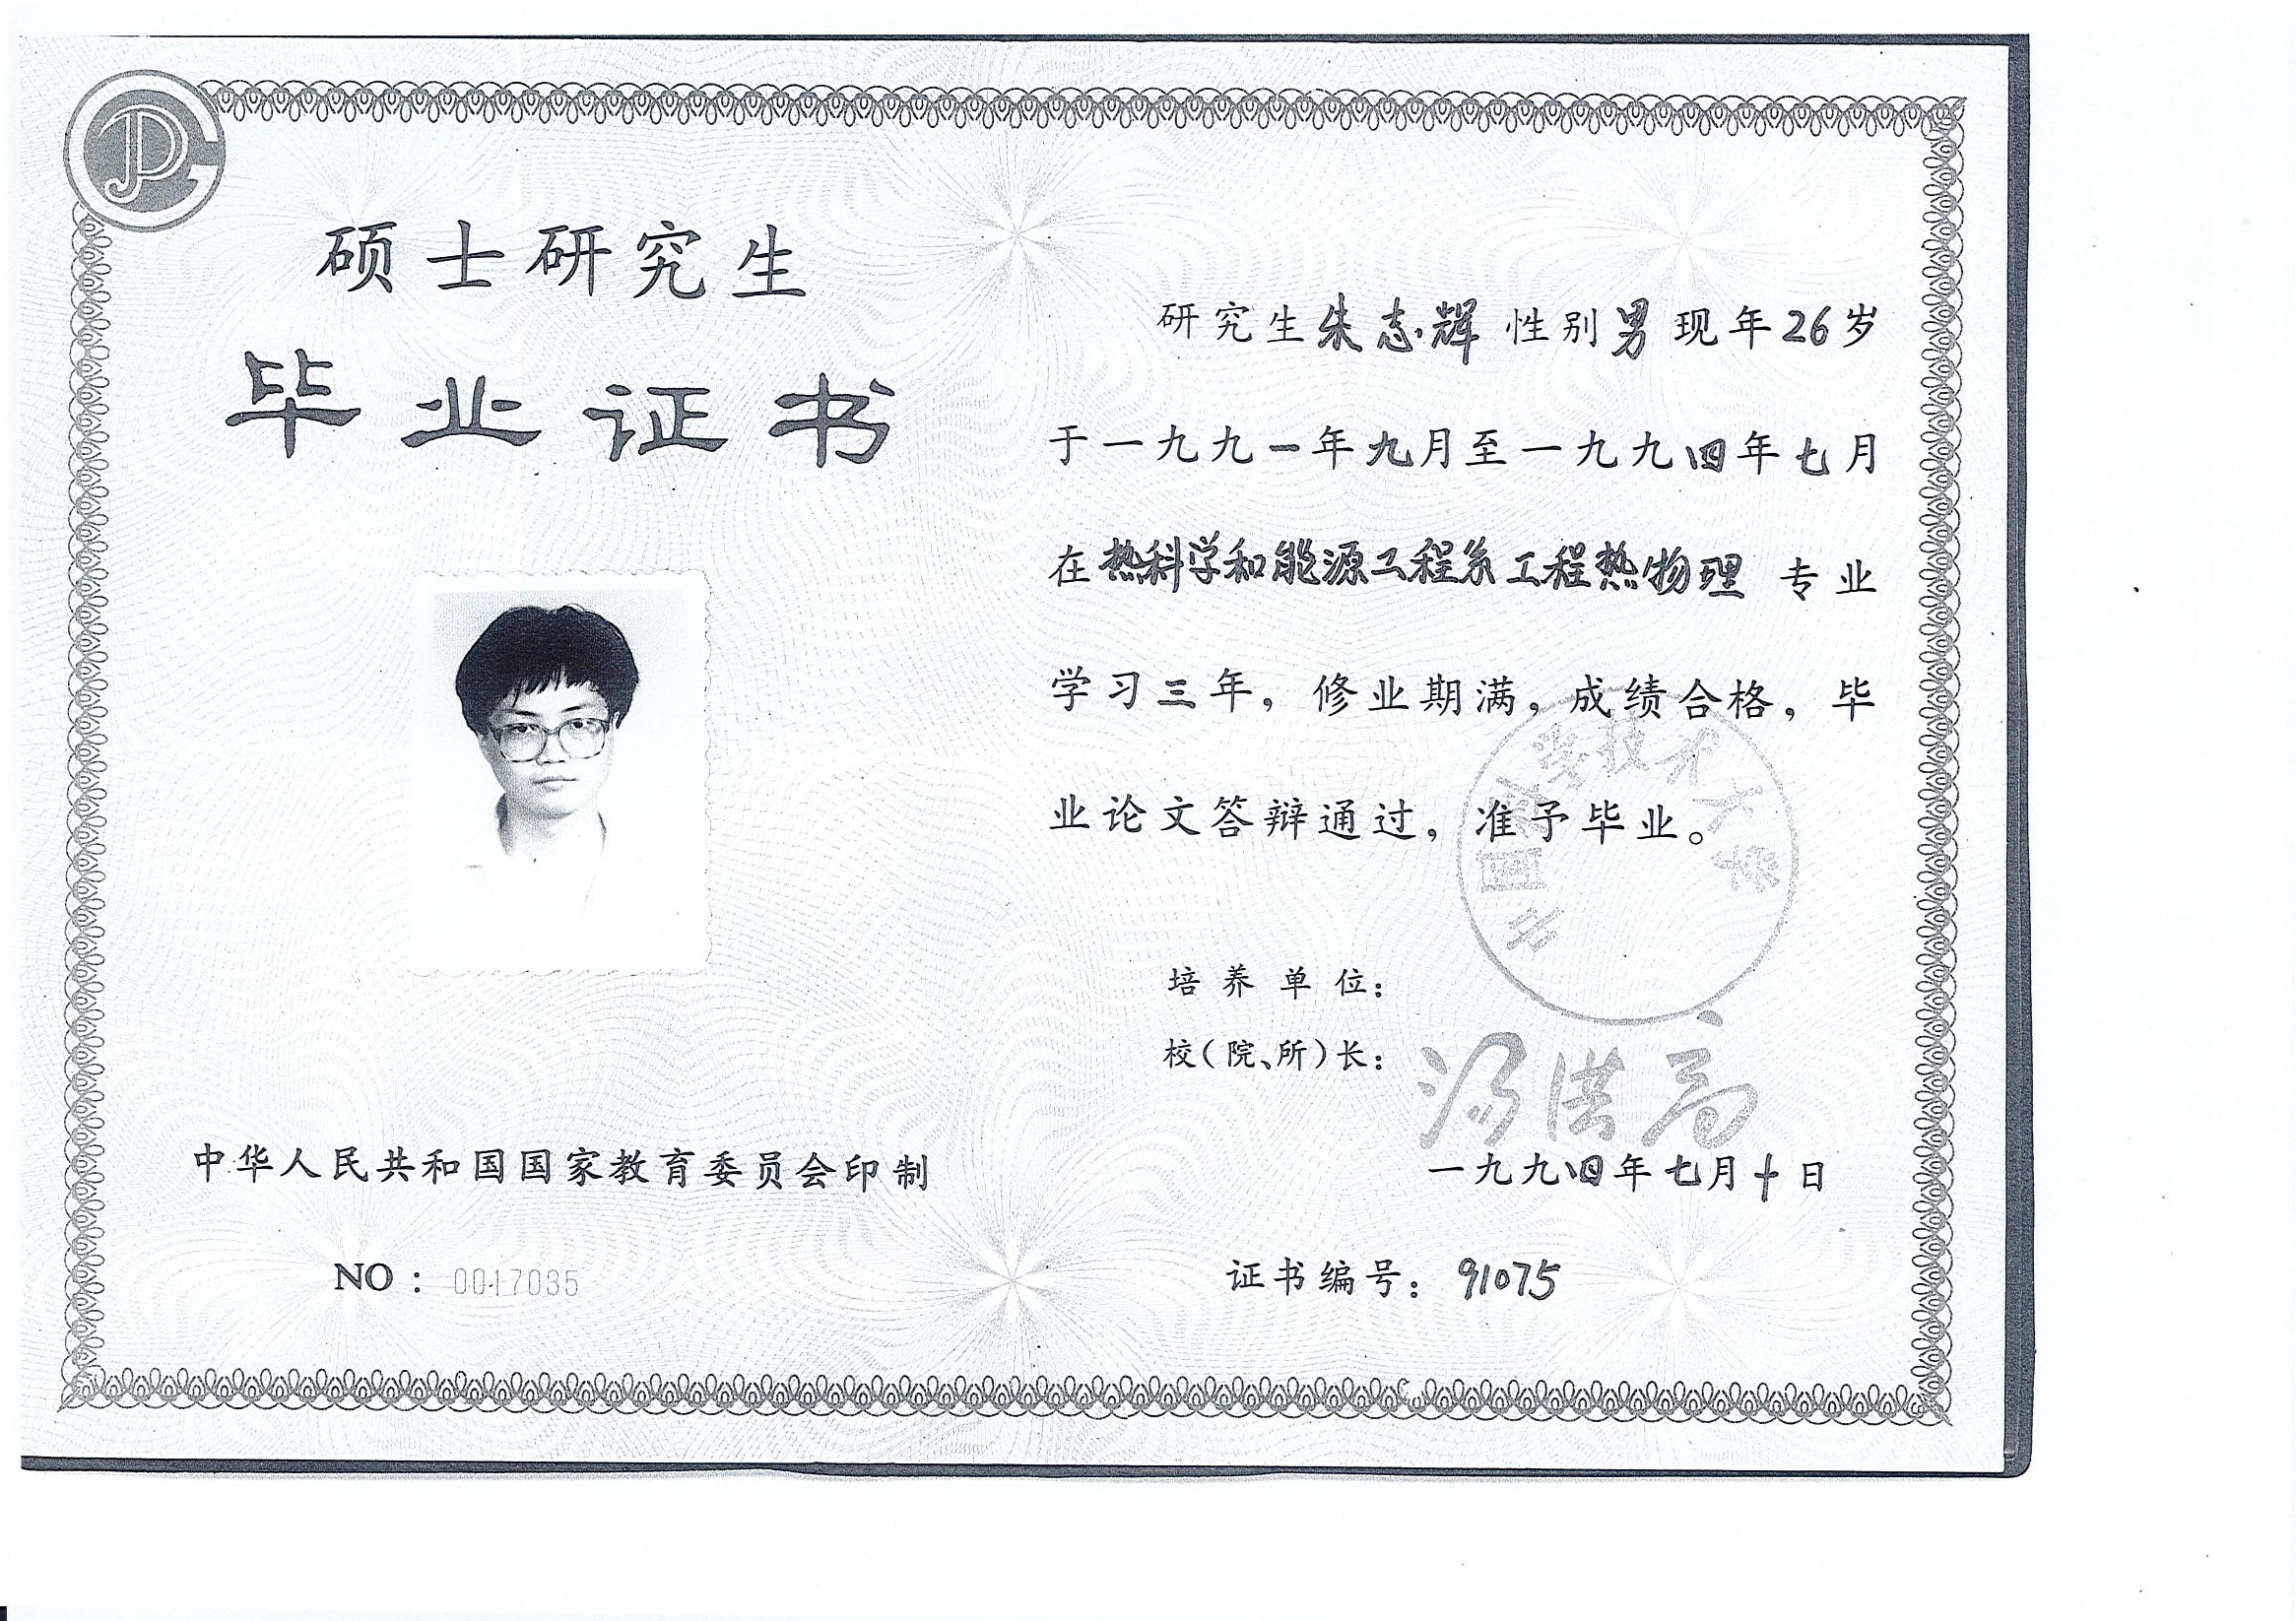 硕士研究生
毕业证书
中华人民共和国国家教育委员会印制
NO：0017035
研究生朱志辉 性别男 现年26岁
于一九九一年九月至一九九四年七月
在热科学和能源工程系工程热物理 专业
学习三年，修业期满，成绩合格，毕
业论文答辩通过，准予毕业。
中国科学技术大学
培养单位：
校（院、所）长：汤洪高
一九九四年七月十日
证书编号：91075